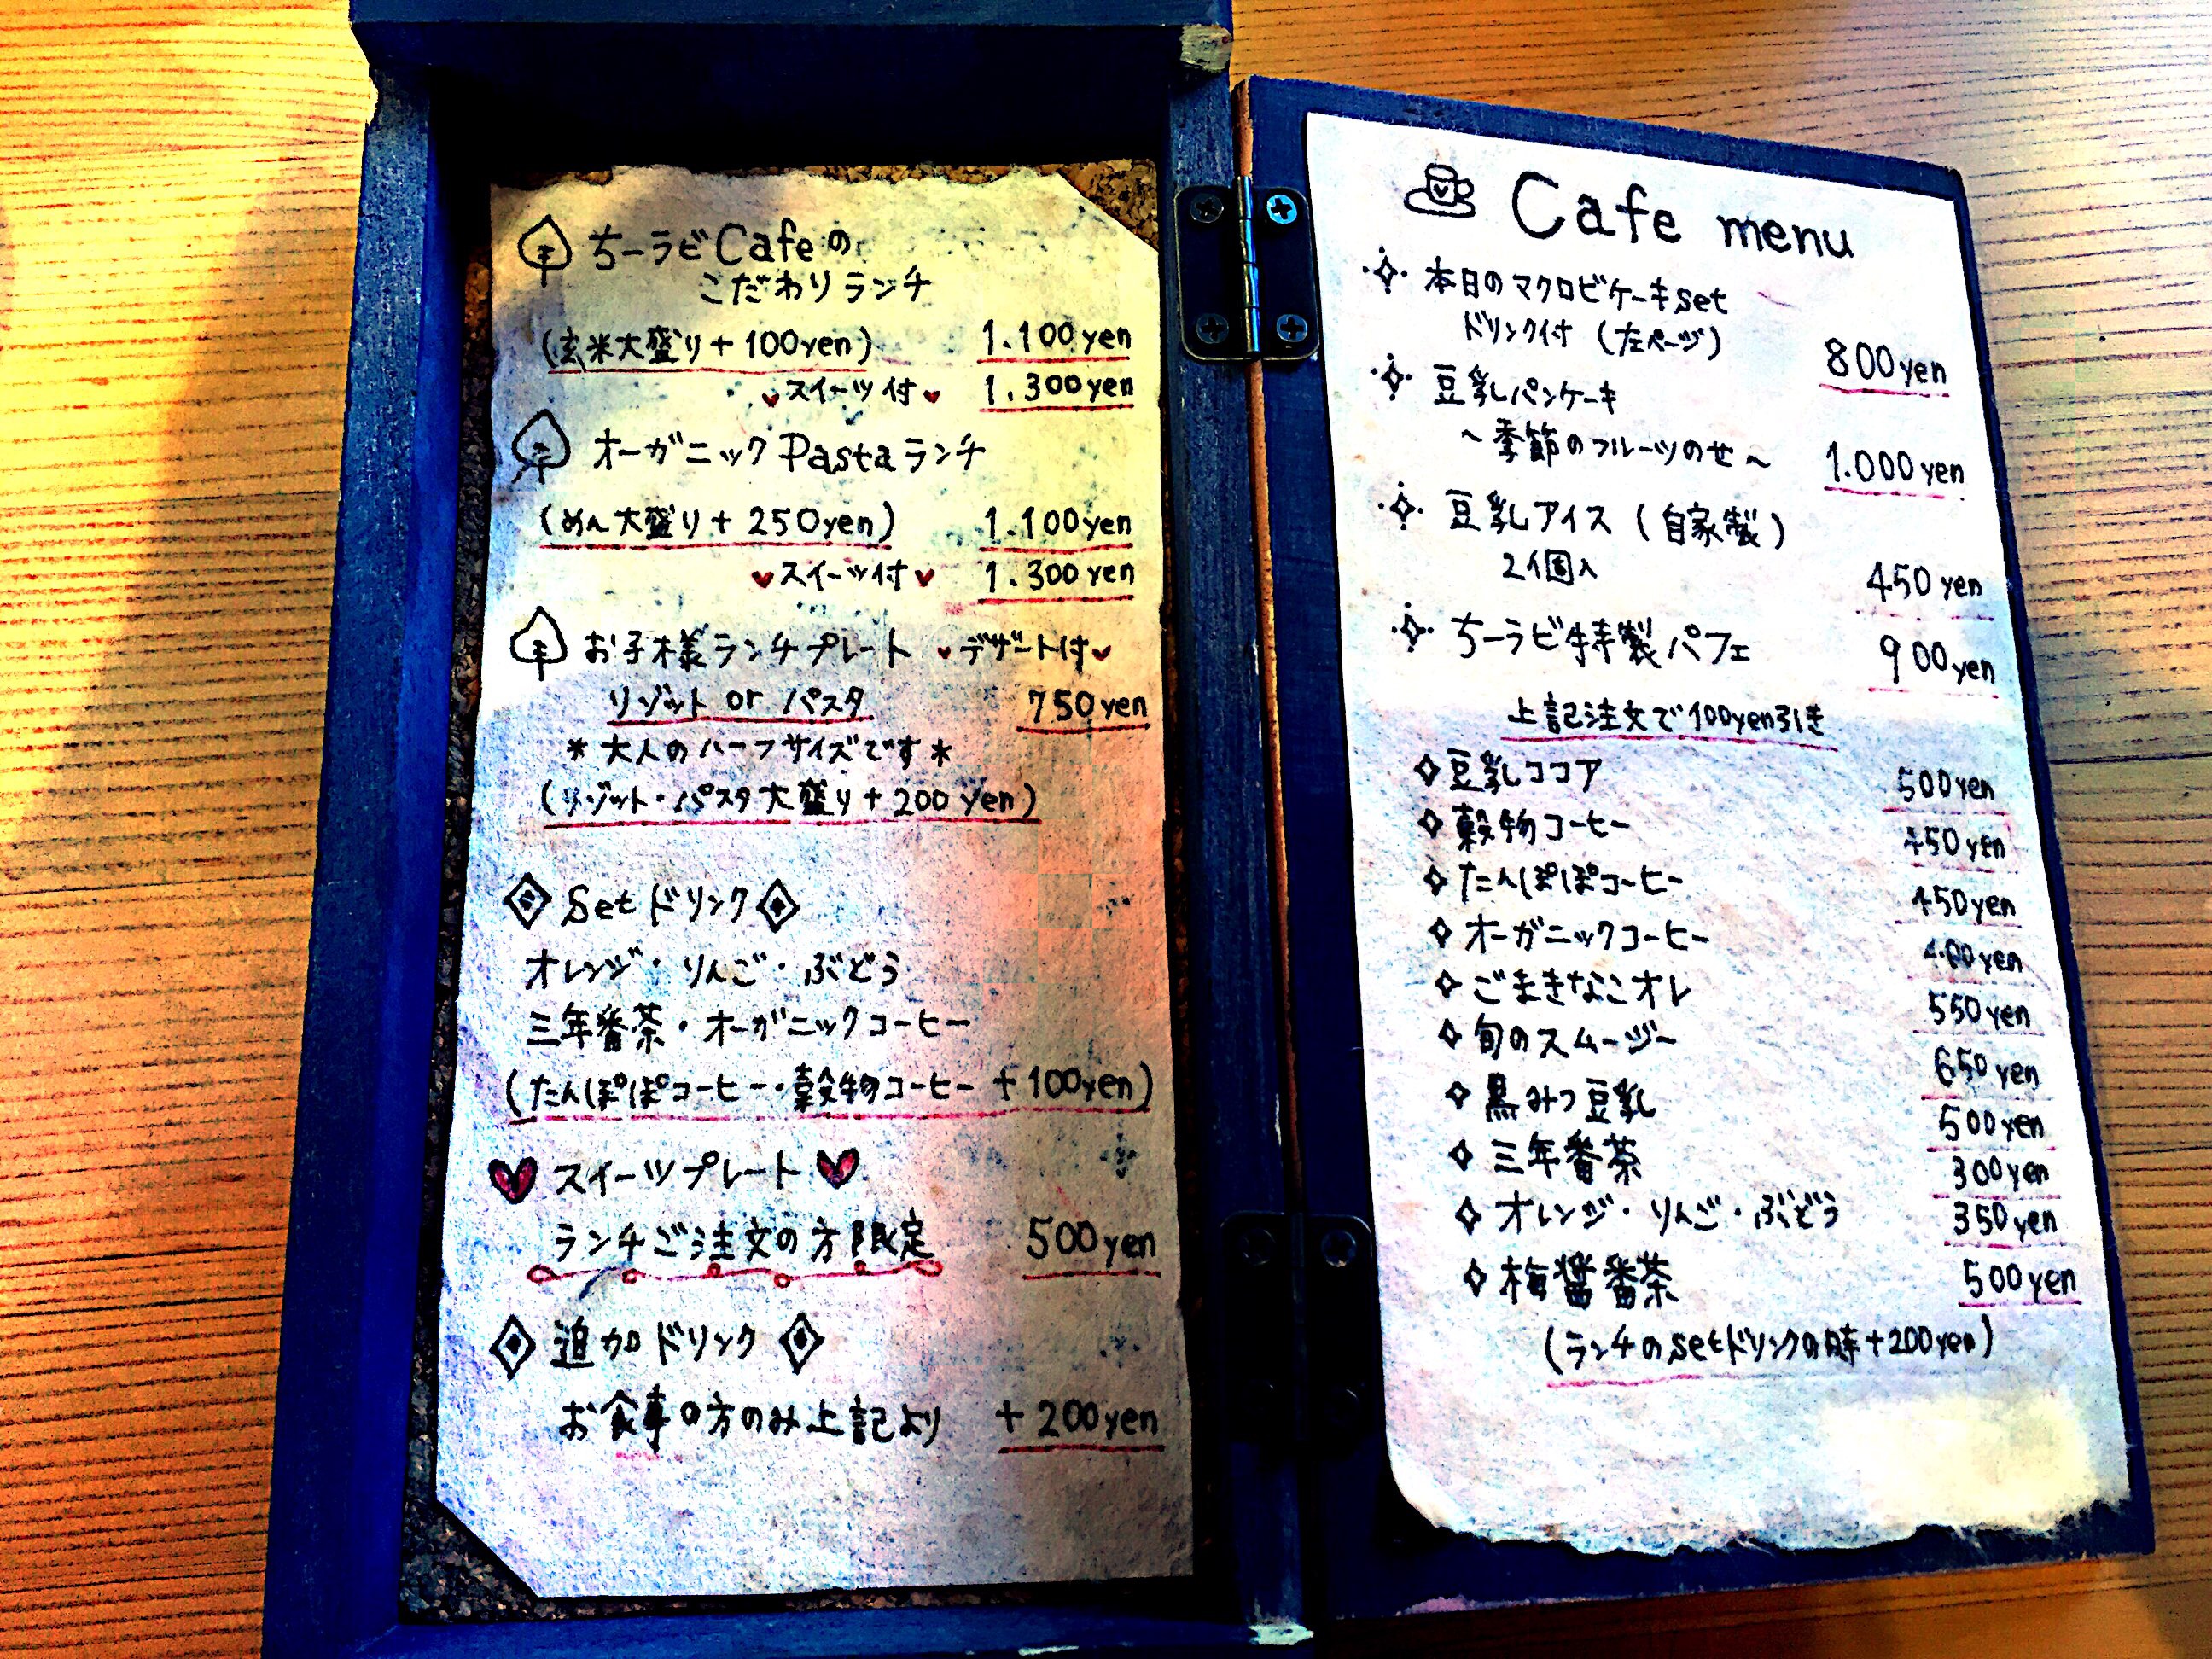 ちーラビCafeの
こだわりランチ
(玄米大盛り+100yen) 1.100yen
スイーツ付 1.300yen
オーガニックPastaランチ
(めん大盛り+250yen) 1.100yen
スイーツ付 1.300yen
お子様ランチプレート デザート付
リゾット or パスタ 750yen
*大人のハーフサイズです*
(リゾット・パスタ大盛り+200yen)
Setドリンク
オレンジ・りんご・ぶどう
三年番茶・オーガニックコーヒー
(たんぽぽコーヒー・穀物コーヒー +100yen)
スイーツプレート
ランチご注文の方限定 500yen
追加ドリンク
お食事の方のみ上記より +200yen
Cafe menu
本日のマクロビケーキset
ドリンク付(左ページ) 800yen
豆乳パンケーキ
~季節のフルーツのせ~ 1.000yen
豆乳アイス(自家製)
2個入 450yen
ちーラビ特製パフェ 900yen
上記注文で100yen引き
豆乳ココア 500yen
穀物コーヒー 450yen
たんぽぽコーヒー 450yen
オーガニックコーヒー 400yen
ごまきなこオレ 550yen
旬のスムージー 650yen
黒みつ豆乳 500yen
三年番茶 300yen
オレンジ・りんご・ぶどう 350yen
梅醤番茶 500yen
(ランチのsetドリンクの時+200yen)